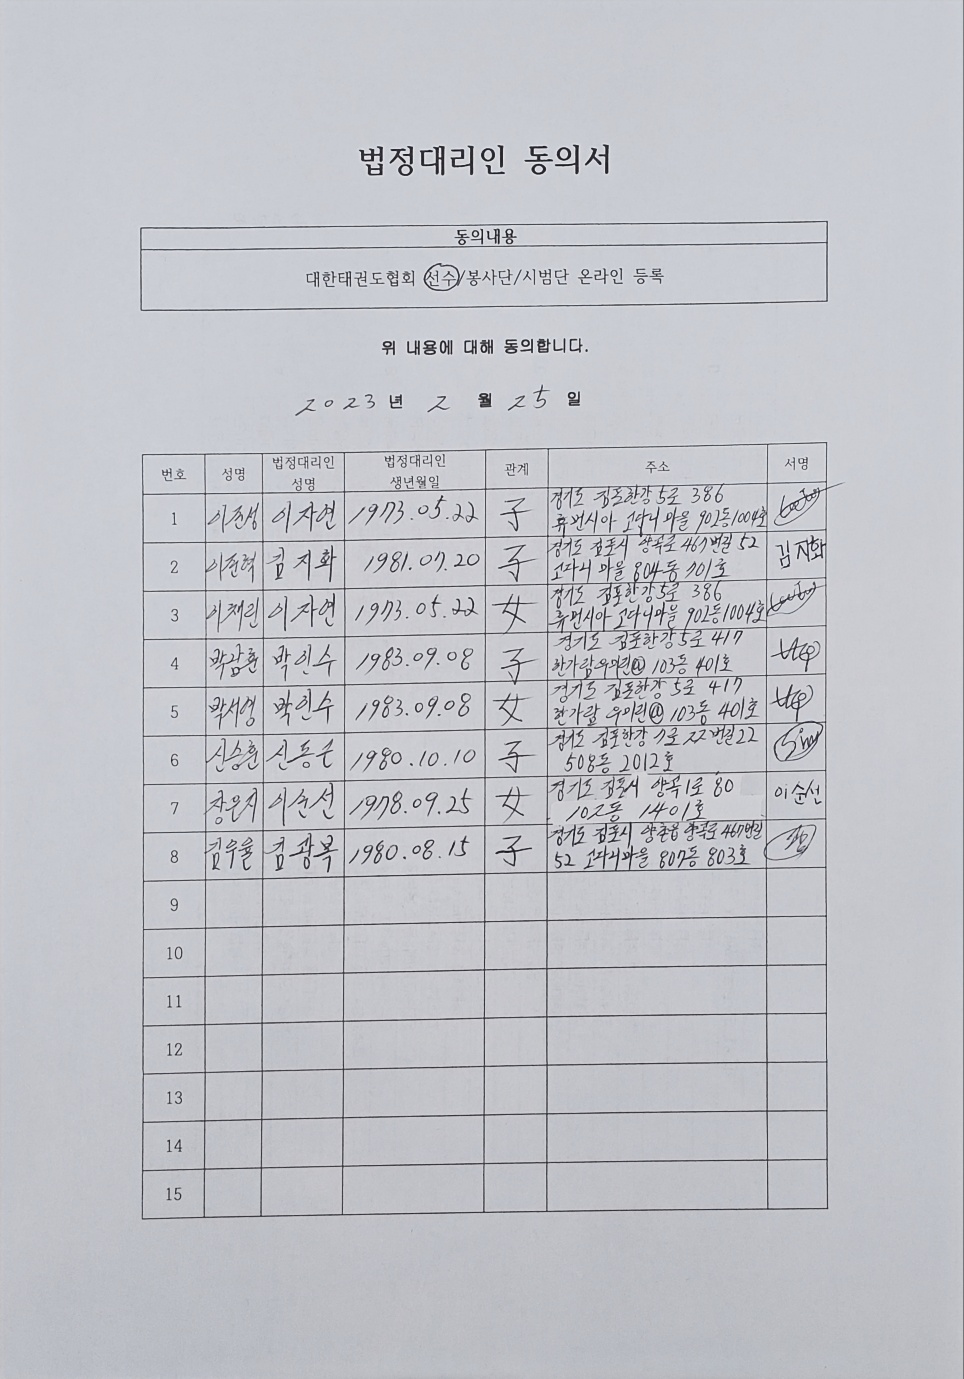 법정대리인 동의서
동의내용
대한태권도협회 선수/봉사단/시범단 온라인 등록
위 내용에 대해 동의합니다.
2023 년 2 월 25 일
번호 성명 법정대리인 성명 법정대리인 생년월일 관계 주소 서명
1 이준성 이자연 1973.05.22 子 경기도 김포한강5로 386
휴먼시아 고다니마을 902동1004호
2 이준혁 김지화 1981.07.20 子 경기도 김포시 양곡로 467번길 52 김지화
고다니 마을 804동 701호
3 이채린 이자연 1973.05.22 女 경기도 김포한강5로 386
휴먼시아 고다니마을 902동1004호
4 박인수 1983.09.08 子 경기도 김포한강5로 417
한가람우미린 103동 401호
5 박서영 박인수 1983.09.08 女 경기도 김포한강 5로 417
한가람 우미린 103동 401호
6 신승훈 신동근 1980.10.10 子 경기도 김포한강 7로 22번길22
508동 2012호
7 이순선 1978.09.25 女 경기도 김포시 양곡1로 80 이순선
102동 1401호
8 김우율 김광복 1980.08.15 子 경기도 김포시 양촌읍 양곡로 467번길
52 고다니마을 807동 803호
9
10
11
12
13
14
15